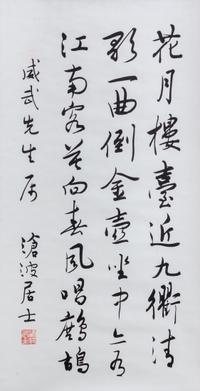 花月樓臺近九衢清
歌一曲倒金壺坐中亦有
江南客莫向春風唱鷓鴣
威武先生屬
滄波居士